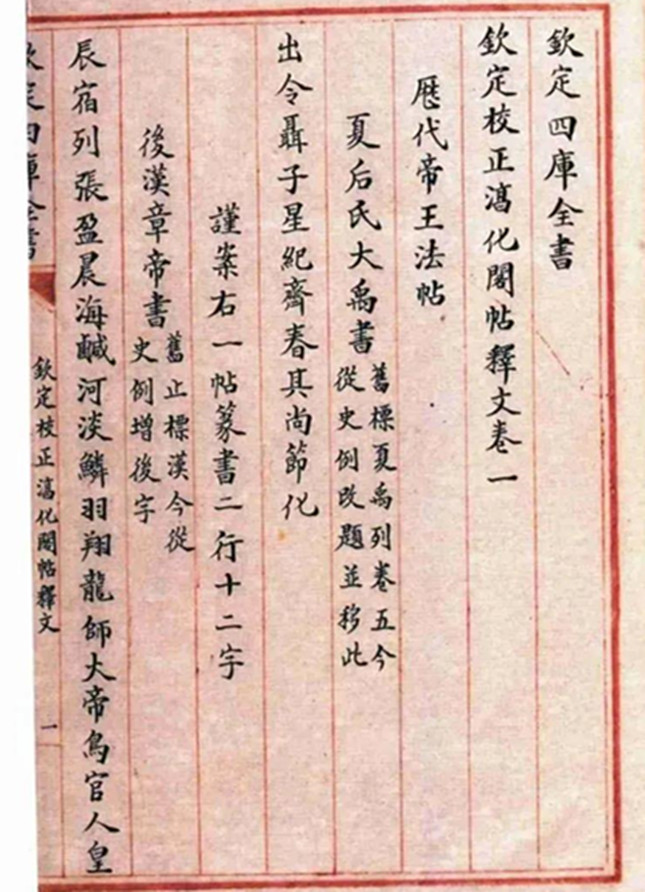 欽定四庫全書
欽定校正淳化閣帖釋文卷一
歷代帝王法帖
夏后氏大禹書
舊標夏禹列卷五今
從史例改題並移此
出令聶子星紀齊春其尚節化
謹案右一帖篆書二行十二字
後漢章帝書
舊止標漢今從
史例增後字
辰宿列張盈晨海鹹河淡鱗羽翔龍師大帝鳥官人皇
欽定四庫全書
欽定校正淳化閣帖釋文
一